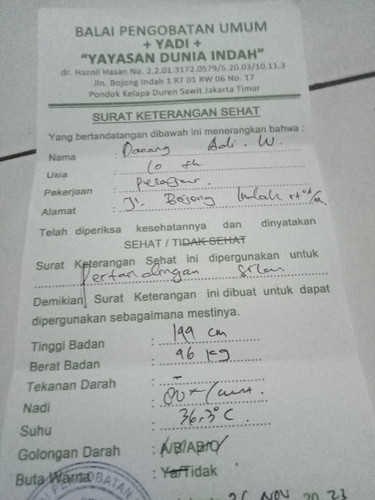 BALAI PENGOBATAN UMUM
+ YADI +
"YAYASAN DUNIA INDAH"
dr. Haznil Hasan No. 2.2.01.3172.0579/6.20.03/10.11.3
Jln. Bojong Indah 1 RT 01 RW 06 No. 17
Pondok Kelapa Duren Sawit Jakarta Timur
SURAT KETERANGAN SEHAT
Yang bertandatangan dibawah ini menerangkan bahwa :
Nama : Danang Adi. W.
Usia : 10 th
Pekerjaan : Pelajar.
Alamat : Jl. Bojong Indah rt
Telah diperiksa kesehatannya dan dinyatakan
SEHAT / TIDAK SEHAT
Surat Keterangan Sehat ini dipergunakan untuk
Pertandingan Silat
Demikian Surat Keterangan ini dibuat untuk dapat
dipergunakan sebagaimana mestinya.
Tinggi Badan : 149 cm
Berat Badan : 46 kg
Tekanan Darah : -
Nadi : 80 x/
Suhu : 36,3°C.
Golongan Darah : A/B/AB/O/
Buta Warna : Ya/Tidak
PENGOBATAN
Nov 20 23